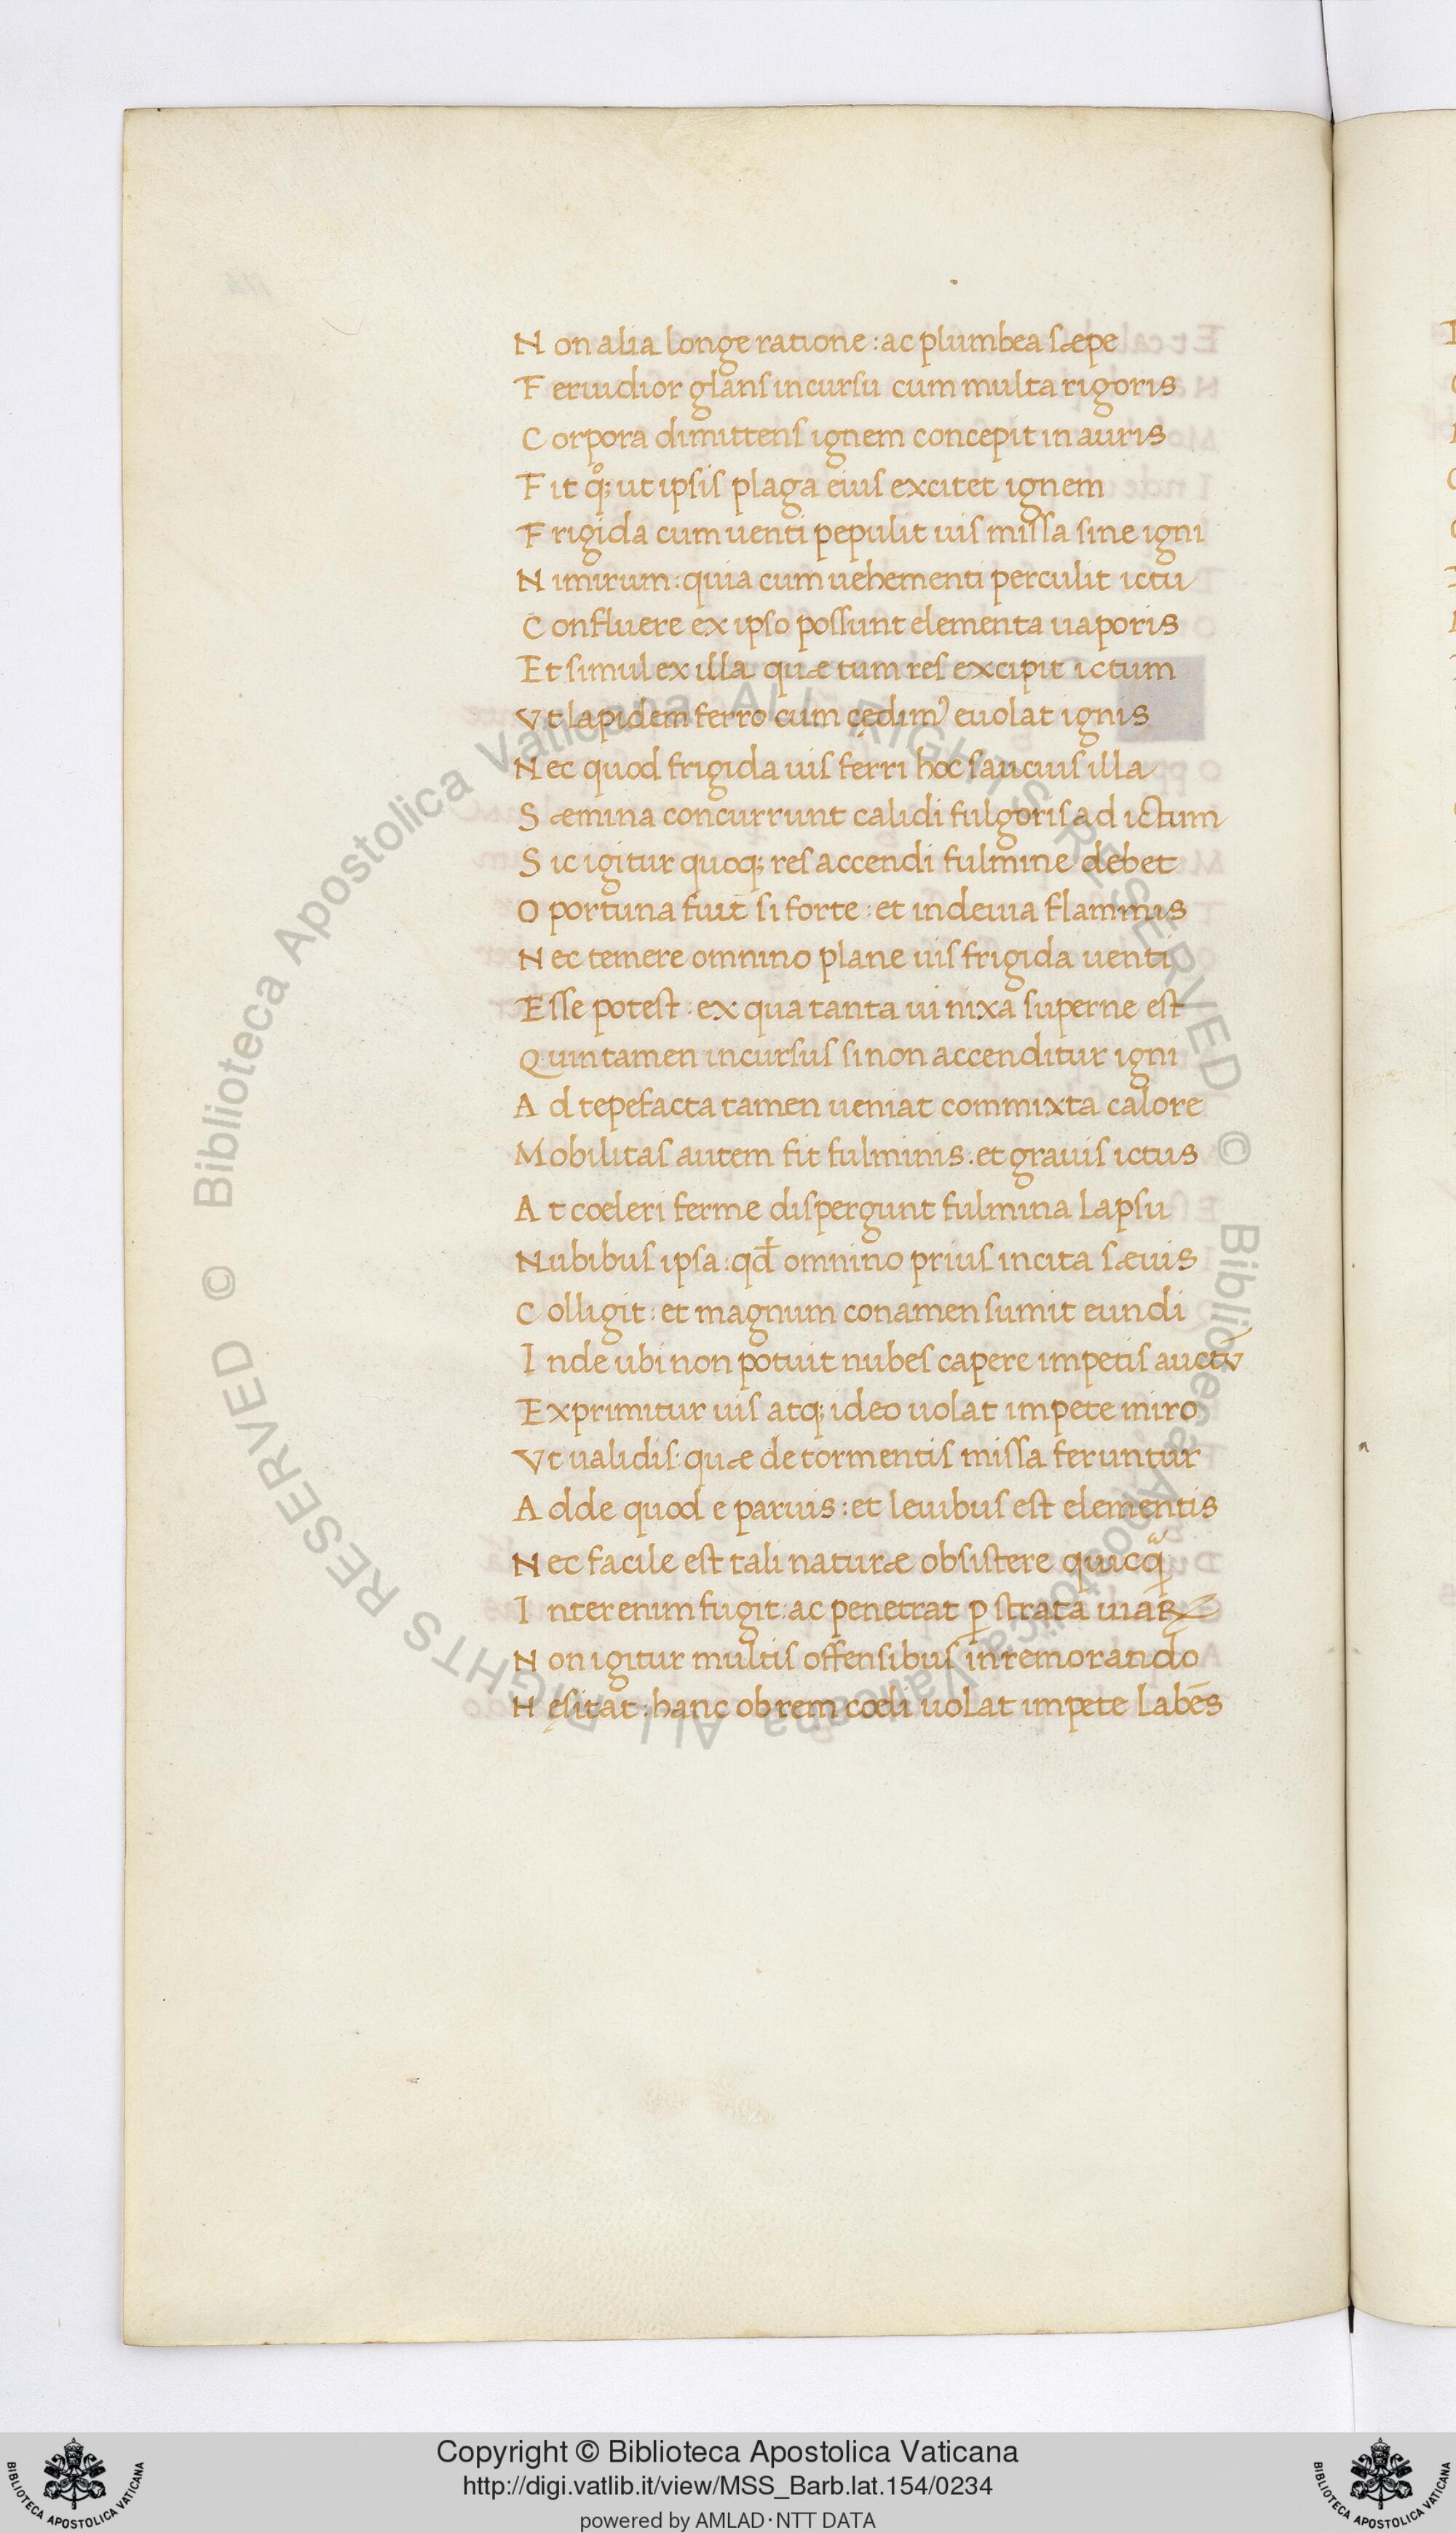 Non alia longe ratione : ac plumbea sæpe
Feruidior glans in cursu cum multa rigoris
Corpora dimittens ignem concepit in auris
Fit qͦꝫ ut ipsis plaga eius excitet ignem
Frigida cum uenti pepulit uis missa sine igni
Nimirum : quia cum uehementi perculit ictu
Confluere ex ipso possunt elementa uaporis
Et simul ex illa quæ tum res excipit ictum
Vt lapidem ferro cum cędimꝰ euolat ignis
Nec quod frigida uis ferri hoc saucius illa
Sæmina concurrunt calidi fulgoris ad ictum
Sic igitur quoqꝫ res accendi fulmine debet
Oportuna fuit si forte : et indeuia flammis
Nec temere omnino plane uis frigida uenti
Esse potest : ex qua tanta ui nixa superne est
Quin tamen incursus si non accenditur igni
Ad tepefacta tamen ueniat commixta calore
Mobilitas autem fit fulminis : et grauis ictus
At cœleri ferme dispergunt fulmina lapsu
Nubibus ipsa : qđ omnino prius incita sæuis
Colligit : et magnum conamen sumit eundi
Inde ubi non potuit nubes capere impetis auctū
Exprimitur uis atqꝫ ideo uolat impete miro
Vt ualidis quæ de tormentis missa feruntur
Adde quod e paruis : et leuibus est elementis
Nec facile est tali naturæ obsistere quicqᷓ
Inter enim fugit : ac penetrat ꝑ strata uiaꝝ
Non igitur multis offensibus in remorando
Hęsitat : hanc ob rem cœli uolat impete labēs
© Biblioteca Apostolica Vaticana ALL RIGHTS RESERVED © Biblioteca Apostolica Vaticana ALL RIGHTS RESERVED
Copyright © Biblioteca Apostolica Vaticana
http://digi.vatlib.it/view/MSS_Barb.lat.154/0234
powered by AMLAD·NTT DATA
BIBLIOTECA APOSTOLICA VATICANA
BIBLIOTECA APOSTOLICA VATICANA